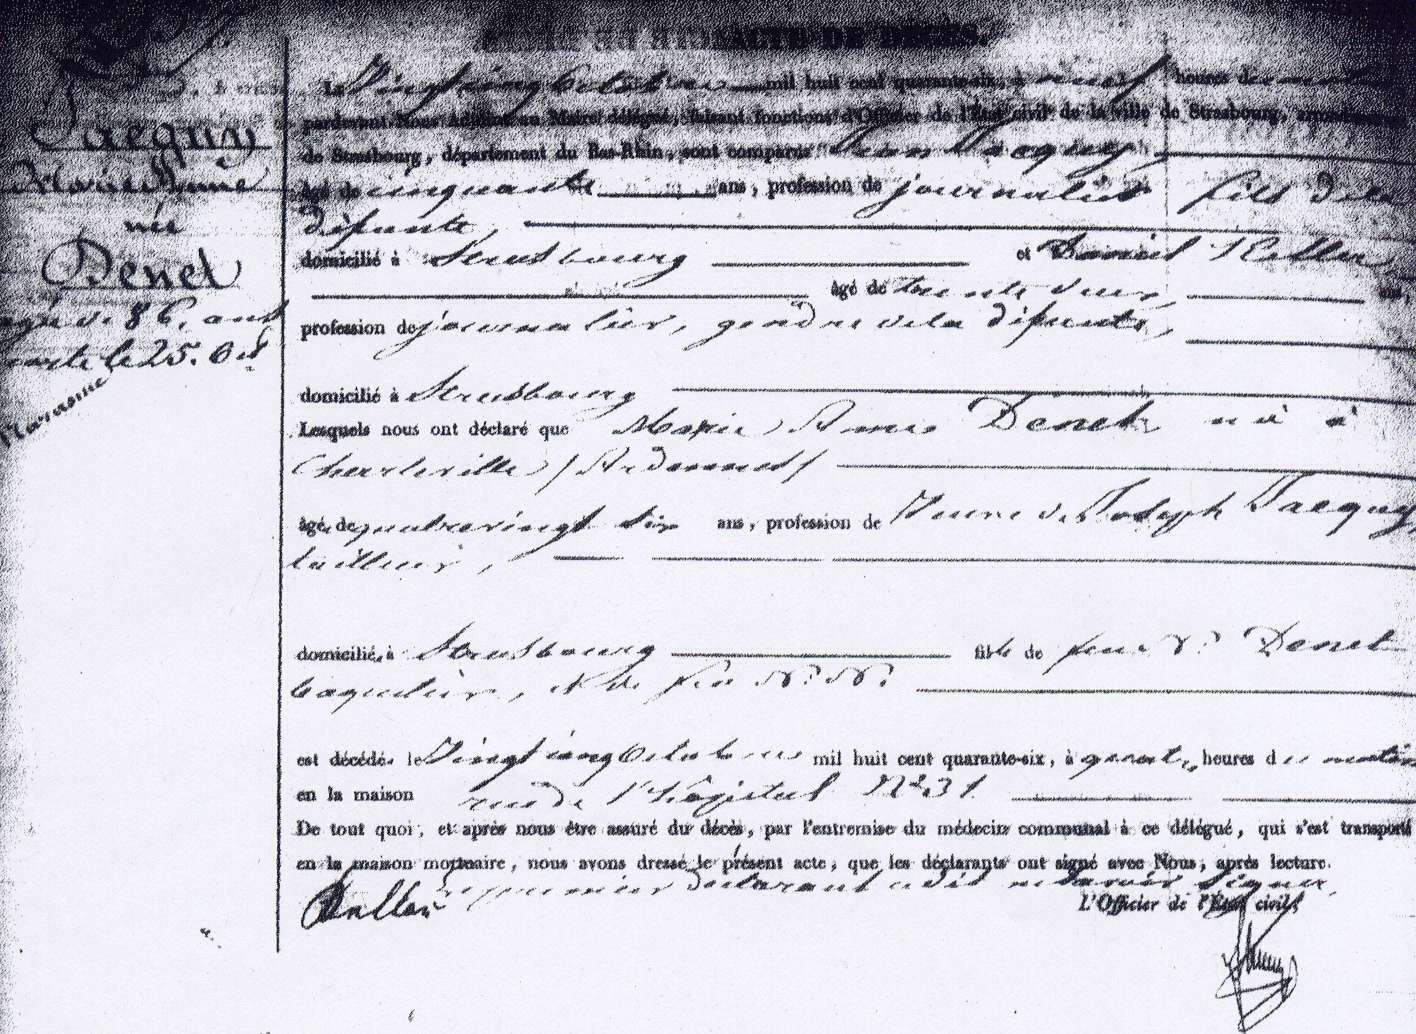 ACTE DE DÉCÈS.
Jacquy
Marie Anne
née
Denet
agée de 86. ans
morte le 25. Oct
Marasme
Le Vingt cinq Octobre mil huit cent quarante-six, à neuf heures du matin
pardevant Nous Adjoint au Maire délégué, faisant fonctions d'Officier de l'État civil de la ville de Strasbourg, arrondissement
de Strasbourg, département du Bas-Rhin, sont comparus Jean Jacquy
âgé de cinquante ans, profession de journalier fils de la
défunte,
domicilié à Strasbourg et Daniel Keller
âgé de trente deux ans,
profession de journalier, gendre de la défunte,
domicilié à Strasbourg
Lesquels nous ont déclaré que Marie Anne Denet né à
Charleville / Ardennes /
âgé. de quatrevingt six ans, profession de Veuve de Joseph Jacquy,
tailleur,
domicilié. à Strasbourg fille de feu N. Denet
et de feu N. N.
est décédé. le Vingt cinq Octobre mil huit cent quarante-six, à quatre heures du matin
en la maison rue de l'hôpital No. 31
De tout quoi, et après nous être assuré du décès, par l'entremise du médecin communal à ce délégué, qui s'est transporté
en la maison mortuaire, nous avons dressé le présent acte, que les déclarants ont signé avec Nous, après lecture.
Keller premier déclarant a dit ne savoir signer,
L'Officier de l'État civil,